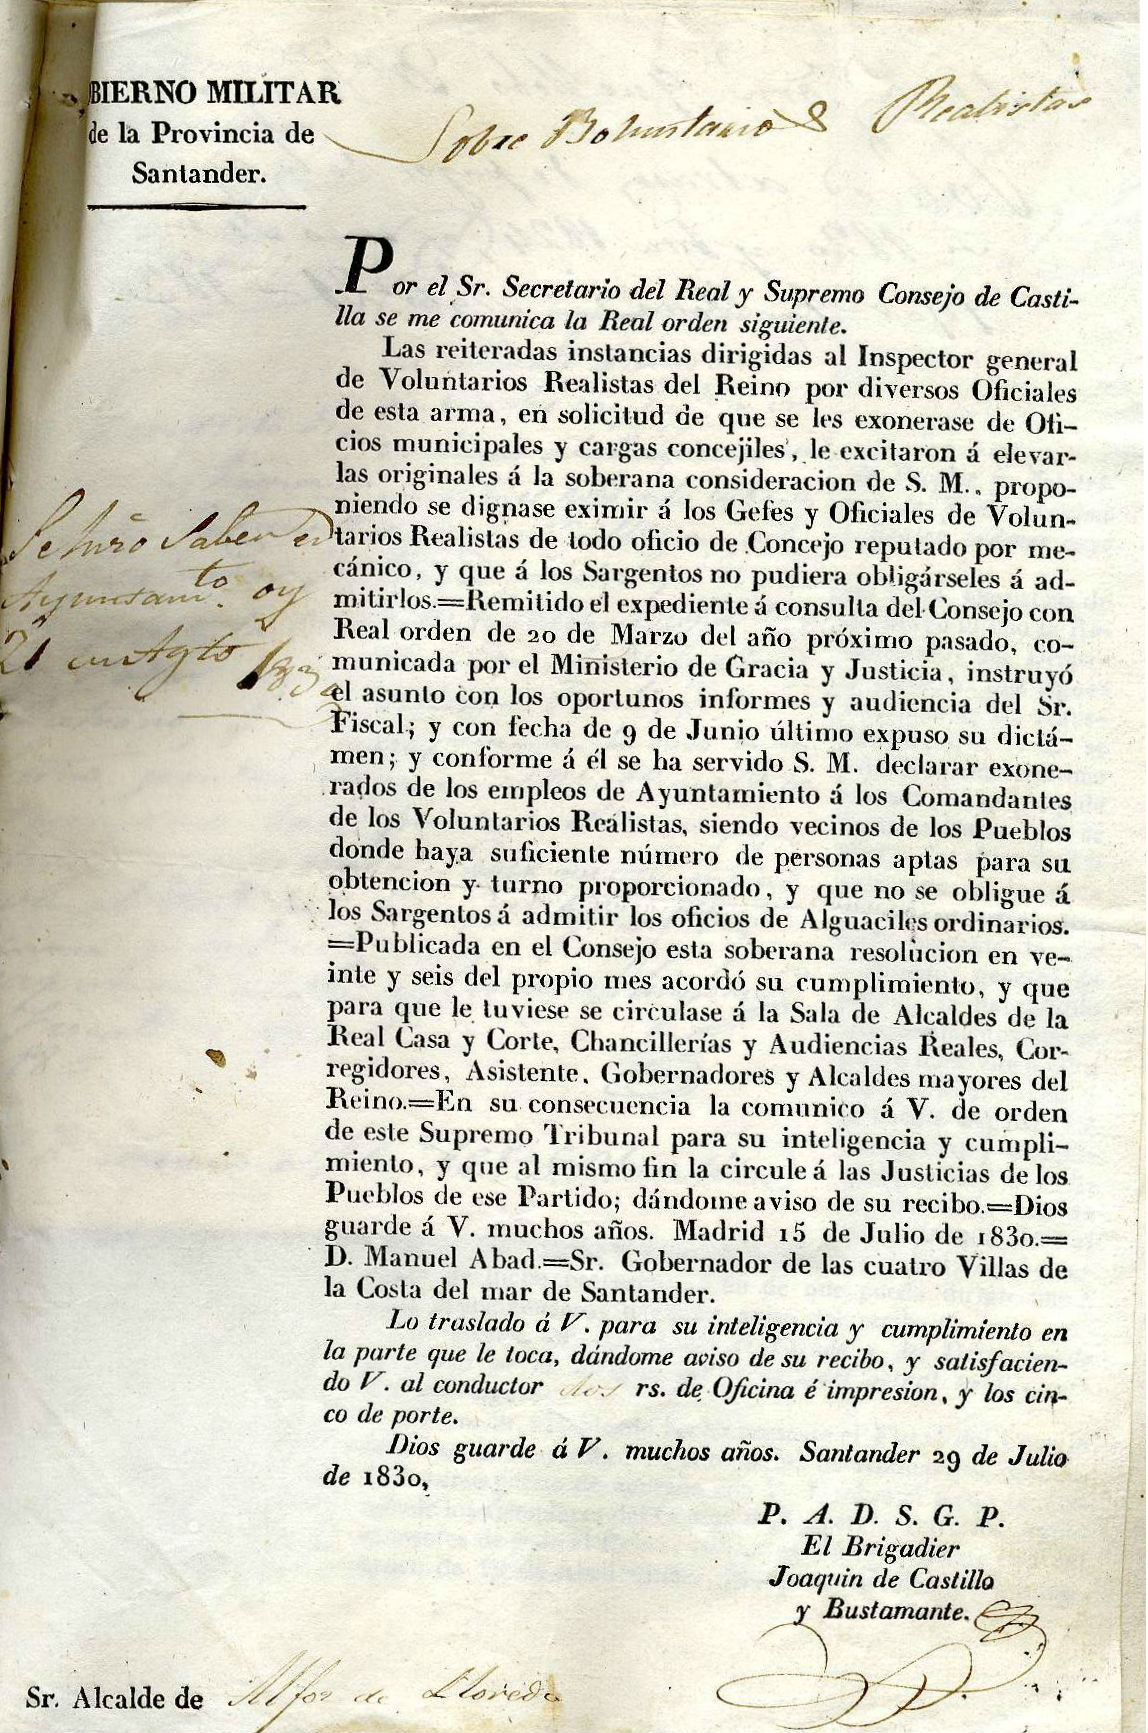 BIERNO MILITAR
de la Provincia de
Santander.
Sobre Boluntarios Realistas
Por el Sr. Secretario del Real y Supremo Consejo de Casti-
lla se me comunica la Real orden siguiente.
Las reiteradas instancias dirigidas al Inspector general
de Voluntarios Realistas del Reino por diversos Oficiales
de esta arma, en solicitud de que se les exonerase de Ofi-
cios municipales y cargas concejiles, le excitaron á elevar-
las originales á la soberana consideracion de S. M., propo-
niendo se dignase eximir á los Gefes y Oficiales de Volun-
tarios Realistas de todo oficio de Concejo reputado por me-
cánico, y que á los Sargentos no pudiera obligárseles á ad-
mitirlos.=Remitido el expediente á consulta del Consejo con
Real orden de 20 de Marzo del año próximo pasado, co-
municada por el Ministerio de Gracia y Justicia, instruyó
el asunto con los oportunos informes y audiencia del Sr.
Fiscal; y con fecha de 9 de Junio último expuso su dictá-
men; y conforme á él se ha servido S. M. declarar exone-
rados de los empleos de Ayuntamiento á los Comandantes
de los Voluntarios Realistas, siendo vecinos de los Pueblos
donde haya suficiente número de personas aptas para su
obtencion y turno proporcionado, y que no se obligue á
los Sargentos á admitir los oficios de Alguaciles ordinarios.
=Publicada en el Consejo esta soberana resolucion en ve-
inte y seis del propio mes acordó su cumplimiento, y que
para que le tuviese se circulase á la Sala de Alcaldes de la
Real Casa y Corte, Chancillerías y Audiencias Reales, Cor-
regidores, Asistente, Gobernadores y Alcaldes mayores del
Reino.=En su consecuencia la comunico á V. de orden
de este Supremo Tribunal para su inteligencia y cumpli-
miento, y que al mismo fin la circule á las Justicias de los
Pueblos de ese Partido; dándome aviso de su recibo.=Dios
guarde á V. muchos años. Madrid 15 de Julio de 1830.=
D. Manuel Abad.=Sr. Gobernador de las cuatro Villas de
la Costa del mar de Santander.
Lo traslado á V. para su inteligencia y cumplimiento en
la parte que le toca, dándome aviso de su recibo, y satisfacien-
do V. al conductor dos rs. de Oficina é impresion, y los cin-
co de porte.
Dios guarde á V. muchos años. Santander 29 de Julio
de 1830,
P. A. D. S. G. P.
El Brigadier
Joaquin de Castillo
y Bustamante.
Se hizo Saber en
Ayuntamto. oy
21 en Agto 1830
Sr. Alcalde de Alfoz de Lloredo